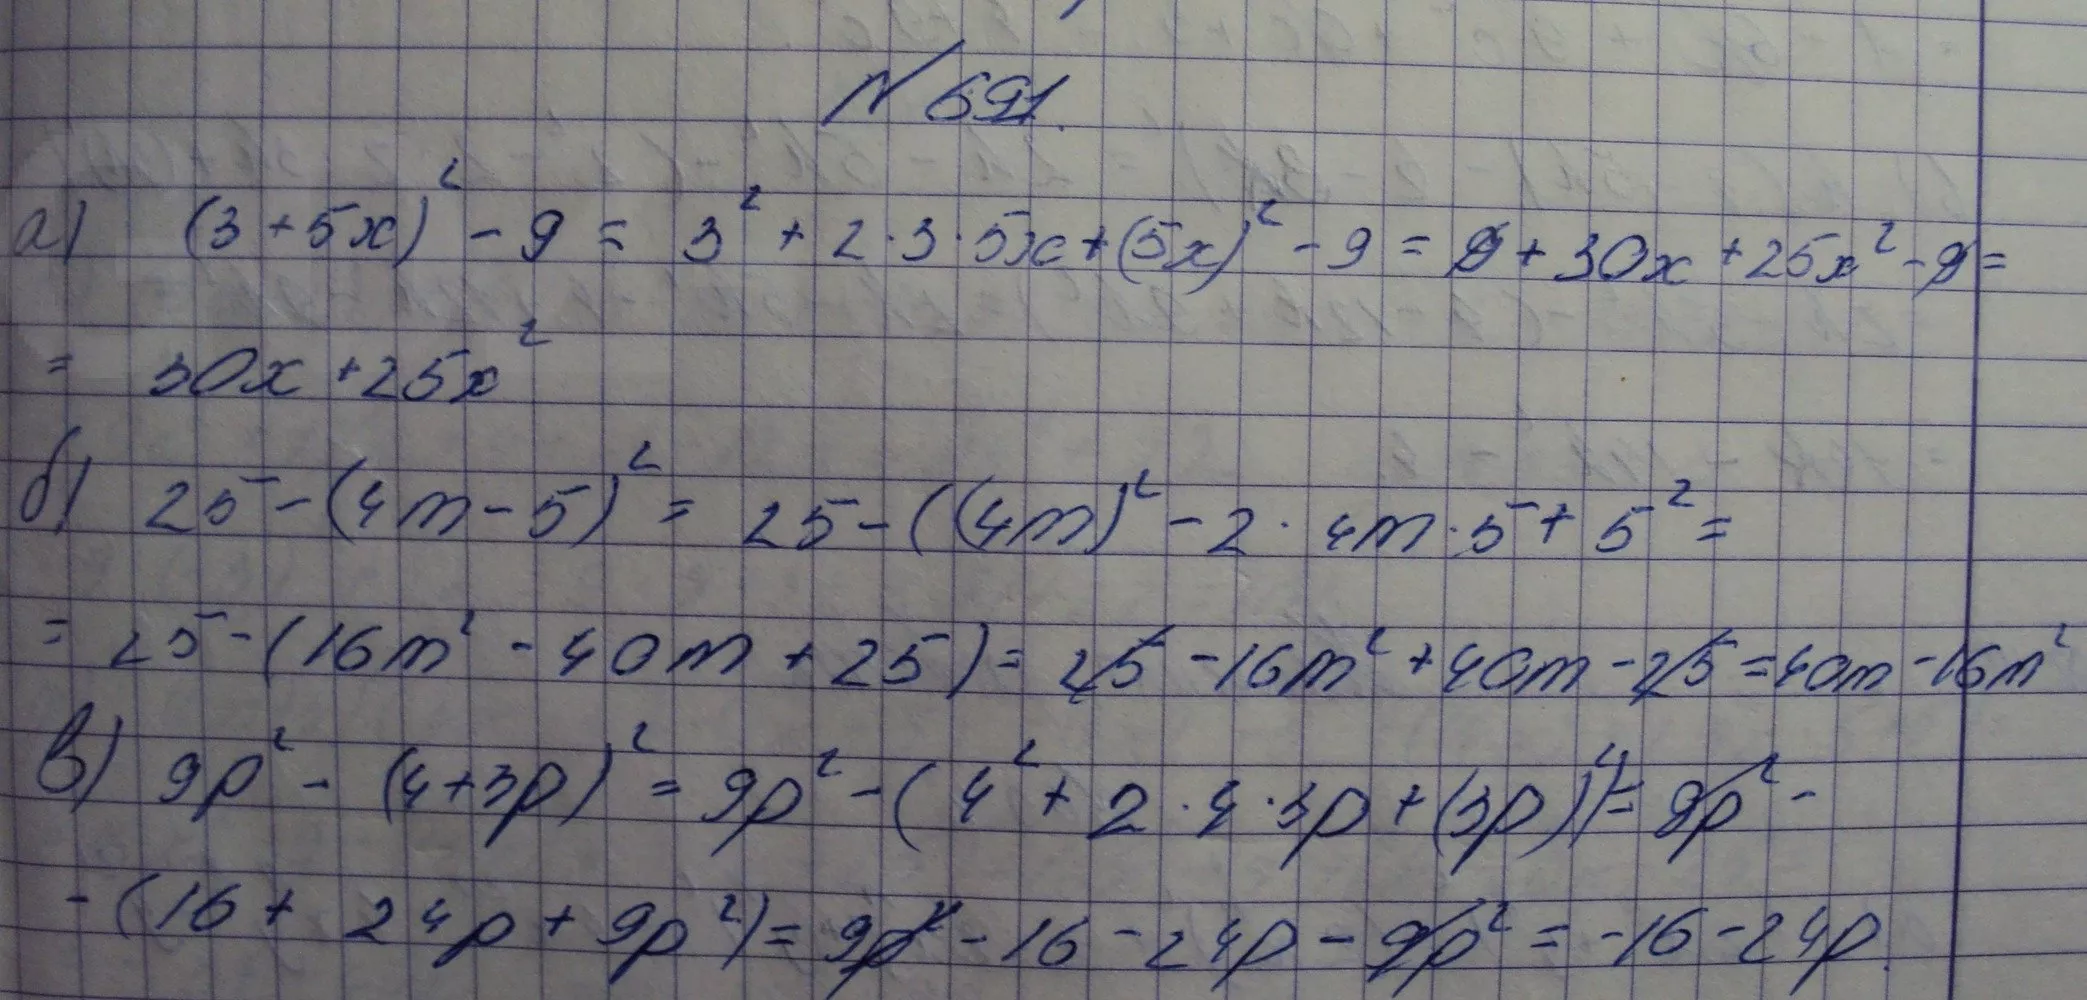 № 691.
а) (3 + 5x)² - 9 = 3² + 2 · 3 · 5x + (5x)² - 9 = 9 + 30x + 25x² - 9 =
= 30x + 25x²
б) 25 - (4m - 5)² = 25 - ((4m)² - 2 · 4m · 5 + 5² =
= 25 - (16m² - 40m + 25) = 25 - 16m² + 40m - 25 = 40m - 16m²
в) 9p² - (4 + 3p)² = 9p² - (4² + 2 · 4 · 3p + (3p)²) = 9p² -
- (16 + 24p + 9p²) = 9p² - 16 - 24p - 9p² = -16 - 24p.